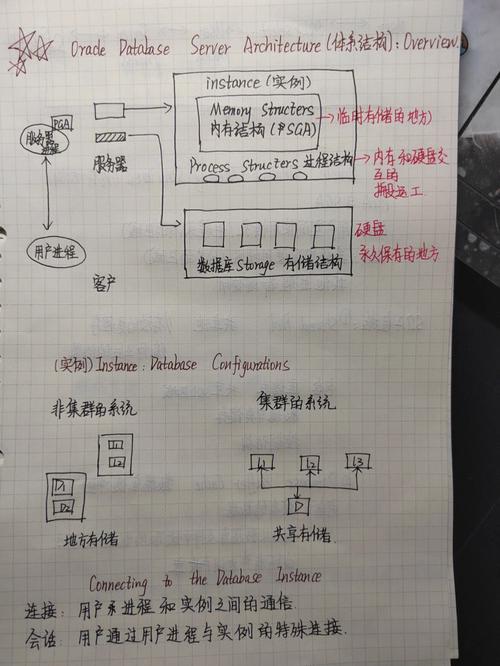 Oracle Database Server Architecture (体系结构): Overview.
instance (实例)
Memory Structers
内存结构 (即SGA)
→ 临时存储的地方)
Process Structers 进程结构
→ 内存和硬盘交
互的
搬运工
PGA
服务器
进程
服务器
用户进程
客户
数据库 Storage 存储结构
硬盘
永久保存的地方
(实例) Instance: Database Configurations
非集群的系统
集群的系统
I1
I2
D1
D2
地方存储
I1
I2
I3
D
共享存储
Connecting to the Database Instance
连接: 用户进程和实例之间的通信.
会话: 用户通过用户进程与实例的特殊连接.